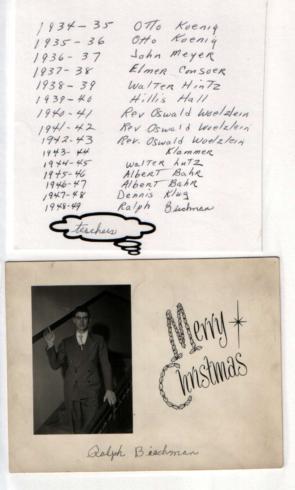 1934-35 Otto Koenig
1935-36 Otto Koenig
1936-37 John Meyer
1937-38 Elmer Consoer
1938-39 Walter Hintz
1939-40 Hillis Hall
1940-41 Rev Oswald Woelzlein
1941-42 Rev Oswald Woelzlein
1942-43 Rev. Oswald Woelzlein
1943-44 Klammer
1944-45 Walter Lutz
1945-46 Albert Bahr
1946-47 Albert Bahr
1947-48 Dennis Klug
1948-49 Ralph Bischman
teachers
Merry
Christmas
Ralph Bischman